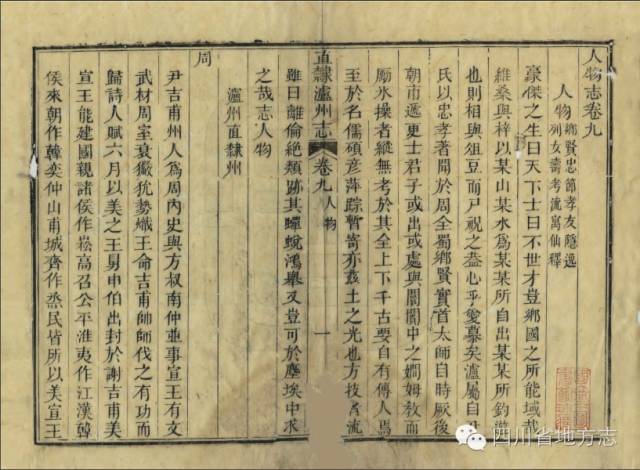 人物志卷九
人物 鄉賢 忠節 孝友 隱逸
列女 壽考 流寓 仙釋
豪傑之生曰天下士曰不世才豈鄉國之所能域哉
維桑與梓以某山某水為某某所自出某某所釣遊
也則相與俎豆而尸祝之葢心乎愛慕矣瀘屬自尹
氏以忠孝著聞於周全蜀鄉賢實首太師自時厥後
朝市遞更士君子或出或處與閭閻中之嫺姆教而
勵氷操者縱無考於其全上下千古要自有傳人焉
至於名儒碩彥萍踪暫寄亦茲土之光也方技者流
直隸瀘州志 卷九 人物 一
雖曰離倫絕類跡其蟬蛻鴻舉又豈可於塵埃中求
之哉志人物
瀘州直隸州
周
尹吉甫州人為周內史與方叔南仲並事宣王有文
武材周室衰玁狁勢熾王命吉甫帥師伐之有功而
歸詩人賦六月以美之王舅申伯出封於謝吉甫美
宣王能建國親諸侯作崧高召公平淮夷作江漢韓
侯來朝作韓奕仲山甫城齊作烝民皆所以美宣王
四川省地方志